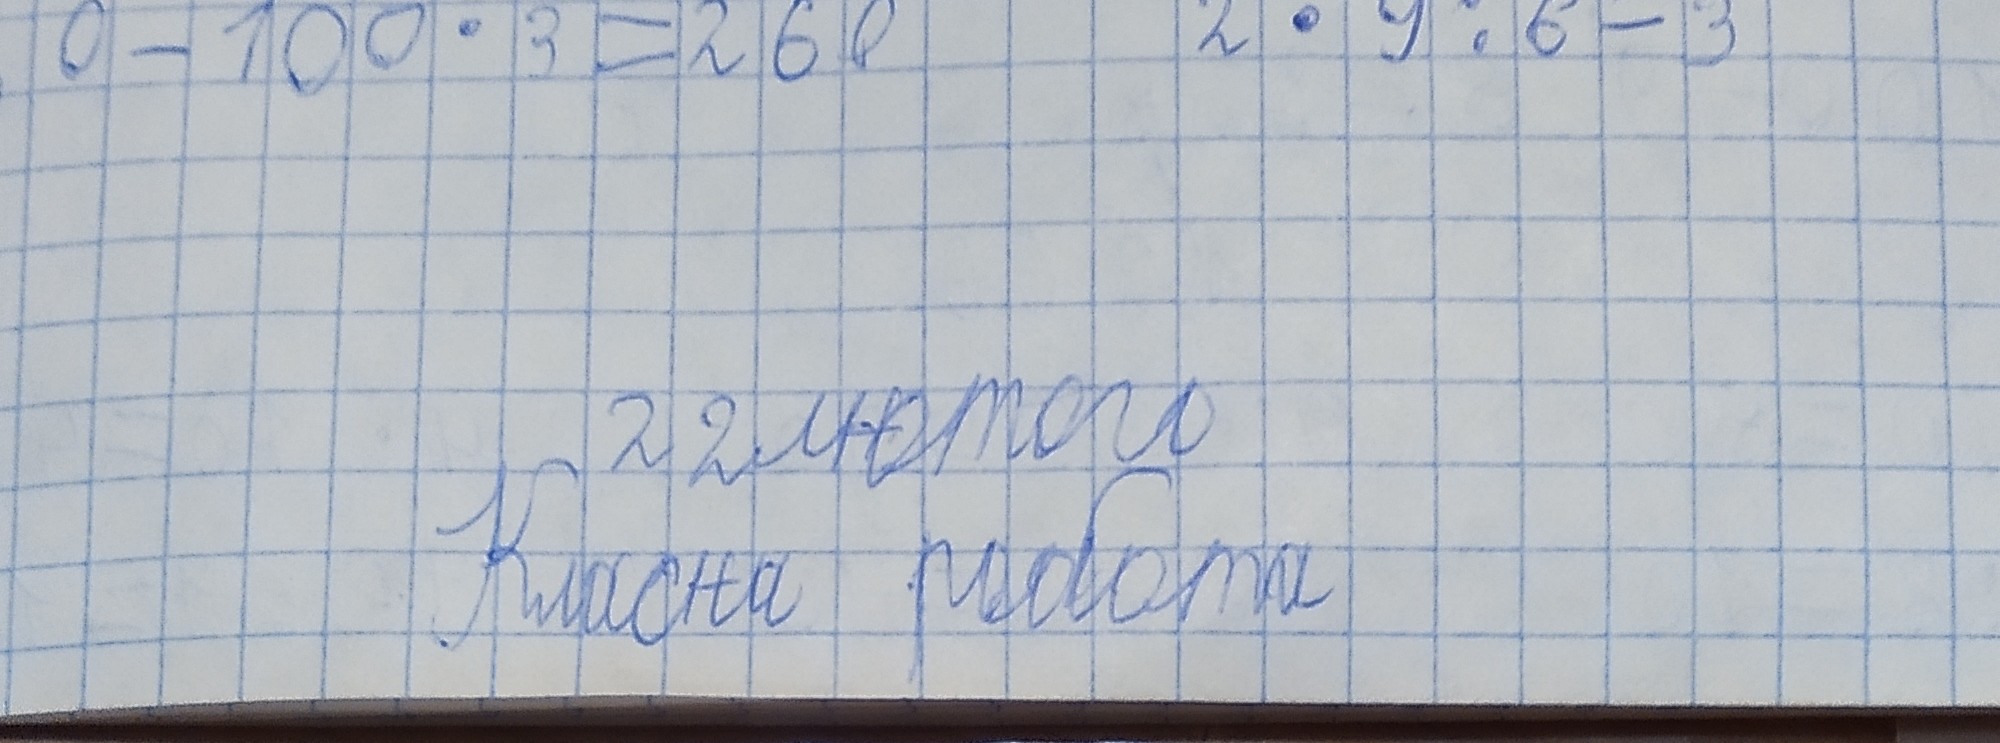 0 - 100 · 3 = 260 2 · 9 : 6 = 3
22 лютого
Класна робота